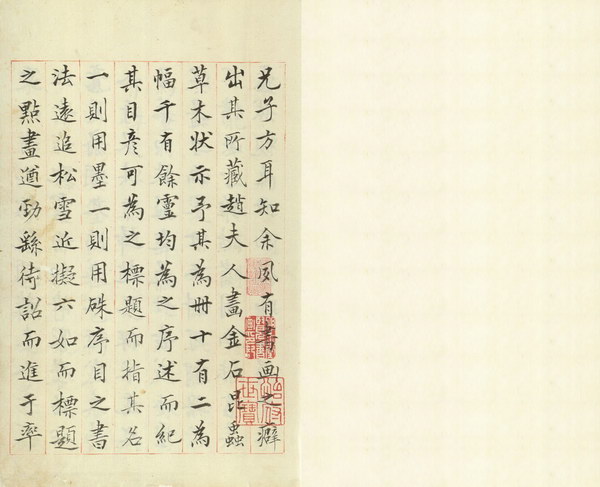 兄子方耳知余夙有書画之癖
出其所藏趙夫人畫金石昆蟲
草木状示予其為冊十有二為
幅千有餘靈均為之序述而紀
其目彦可為之標題而指其名
一則用墨一則用硃序目之書
法遠追松雪近擬六如而標題
之點畫遒勁繇待詔而進于率